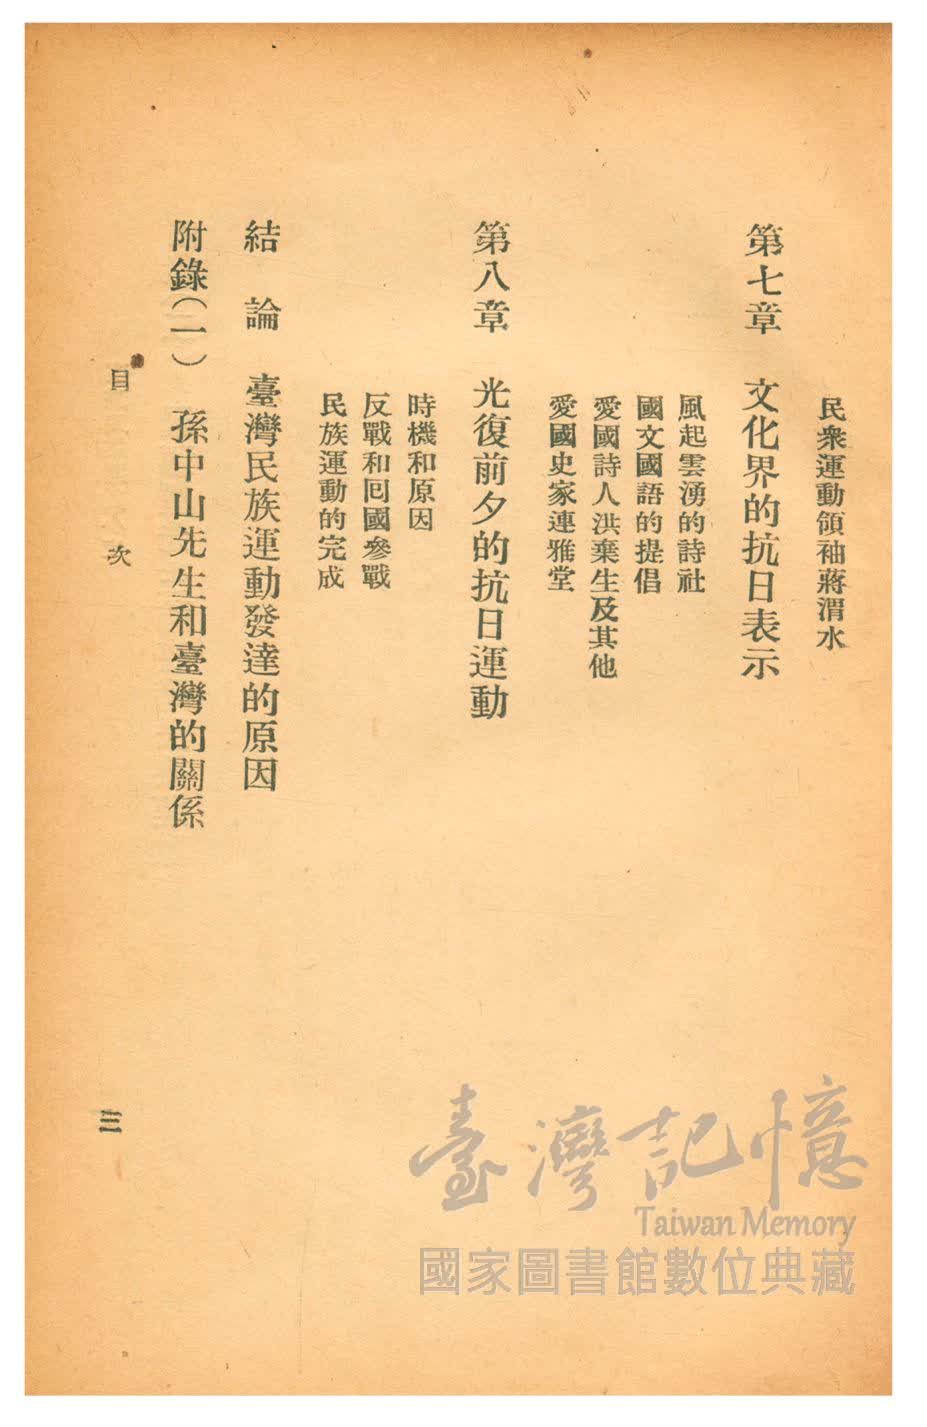 民衆運動領袖蔣渭水
第七章　文化界的抗日表示
風起雲湧的詩社
國文國語的提倡
愛國詩人洪棄生及其他
愛國史家連雅堂
第八章　光復前夕的抗日運動
時機和原因
反戰和囘國參戰
民族運動的完成
結　論　臺灣民族運動發達的原因
附錄（一）　孫中山先生和臺灣的關係
目　次
三
臺灣記憶
Taiwan Memory
國家圖書館數位典藏